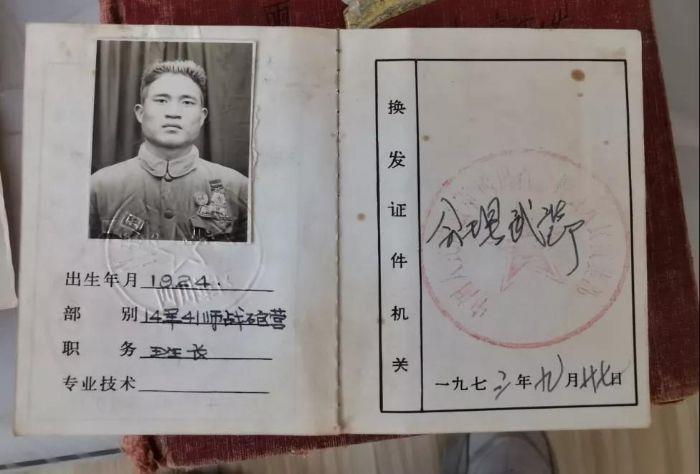 出生年月 1924.
部别 14军41师战砲营
职务 班长
专业技术
换发证件机关
县武装
一九七三年九月廿七日